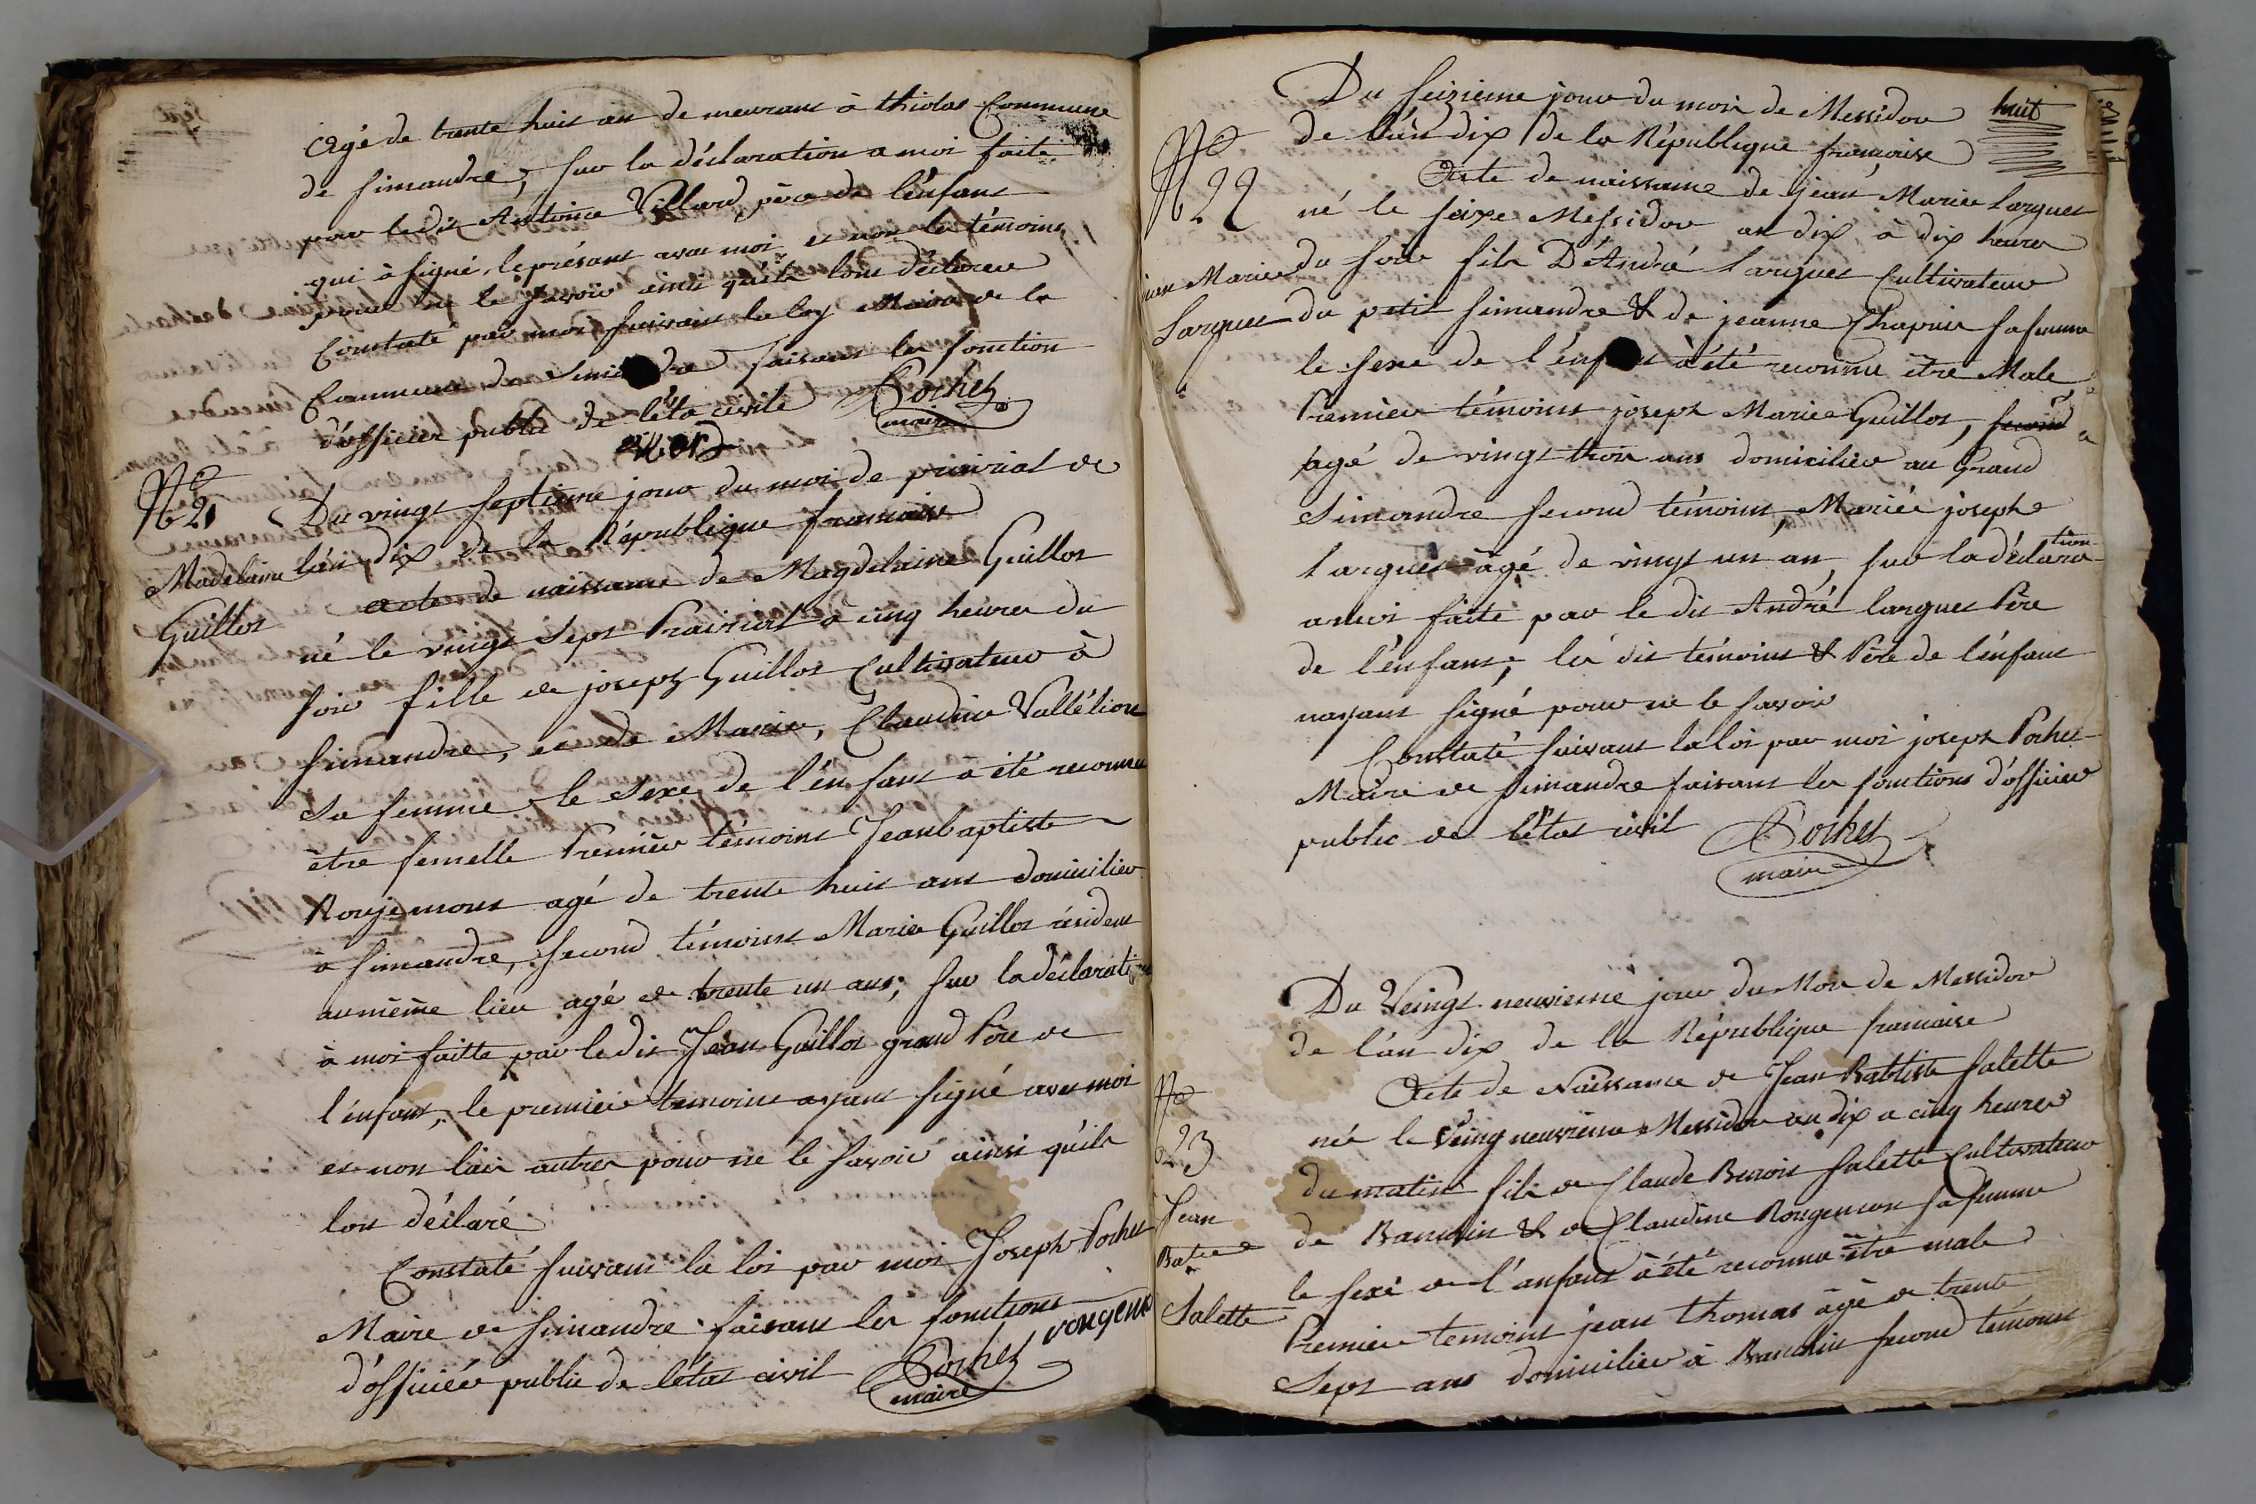 Agé de trente huit ans de meurant à thiolas Commune
de simandre, sur la déclaration a moi faite
par ledit Antoine Villard père de l'énfant
qui à signé le présant avec moi et non les témoins
pour ne le savoir ainsi qu'ils lont déclarer
Constaté par moi suivant la loy Maire de la
Commune de Simandre faisant les fonction
d'officier public de l'éta civile Pochet
maire
N° 21 Du vingt septieme jour du moi de prairial de
Madelaine l'án dix de la République francaise
Guillot acte de naissance de Magdelaine Guillot
né le vingt Sept Prairial à cinq heures du
soir fille de joseph Guillot Cultivateur à
Simandre, et de Marie, Claudine Vallélion
sa femme le sexe de l'énfant a été reconnu
être femelle Premiér témoins Jeanbaptiste
Roujemont agé de trente huit ans domicilier
à simandre, second témoins Marie Guillot résident
au même lieu agé de trente un ans; sur la déclaration
à moi faitte par ledit Jean Guillot grand Père de
l'énfant, le premier temoins ayant signé avec moi
et non láu autres pour ne le savoir ainsi quils
lon déclaré
Constaté suivant la loi par moi Joseph Pochet
Maire de simandre faisant les fonctions
d'officiér public de l'état civil Pochet rongemo
maire
huit
Du seizieme jour du mois de Messidor
de l'án dix de la République francaise
N° 22 Acte de naissance de jean Marie Larguet
né le seize Messidor an dix à dix heures
jean Marie du soir fils D'André Larguet Cultivateur
Larguet du petit simandre & de jeanne Chapuis sa femme
le sexe de l'énfant à été reconnu être Male
Premier témoins joseph Marie Guillot, second
agé de vingt trois ans domicilier au Grand
Simandre second témoins Marie joseph
Larguet âgé de vingt un an sur la déclaration
a moi faite par le dit André larguet Père
de l'énfant; les dit témoins & Père de l'énfant
nayant signé pour ne le savoir
Constaté suivant la loi par moi joseph Pochet
Maire de simandre faisant les fonctions d'officier
public de l'état civil Pochet
maire
Du Veingt neuvieme jour du Mois de Messidor
de l'an dix de la République francaise
N° Acte de Naissance de Jean Babtiste Salette
23 née le Veing neuvieme Messidor an dix a cinq heures
Jean du matin fils de Claude Benoit Salette Cultivateur
Batte de Banchin & de Claudine Rongemon sa femme
le sexe de l'anfant à été reconnu être male
Salette Premier temoins jean thomas âgé de trente
Sept ans domicilier à Banchin second témoins